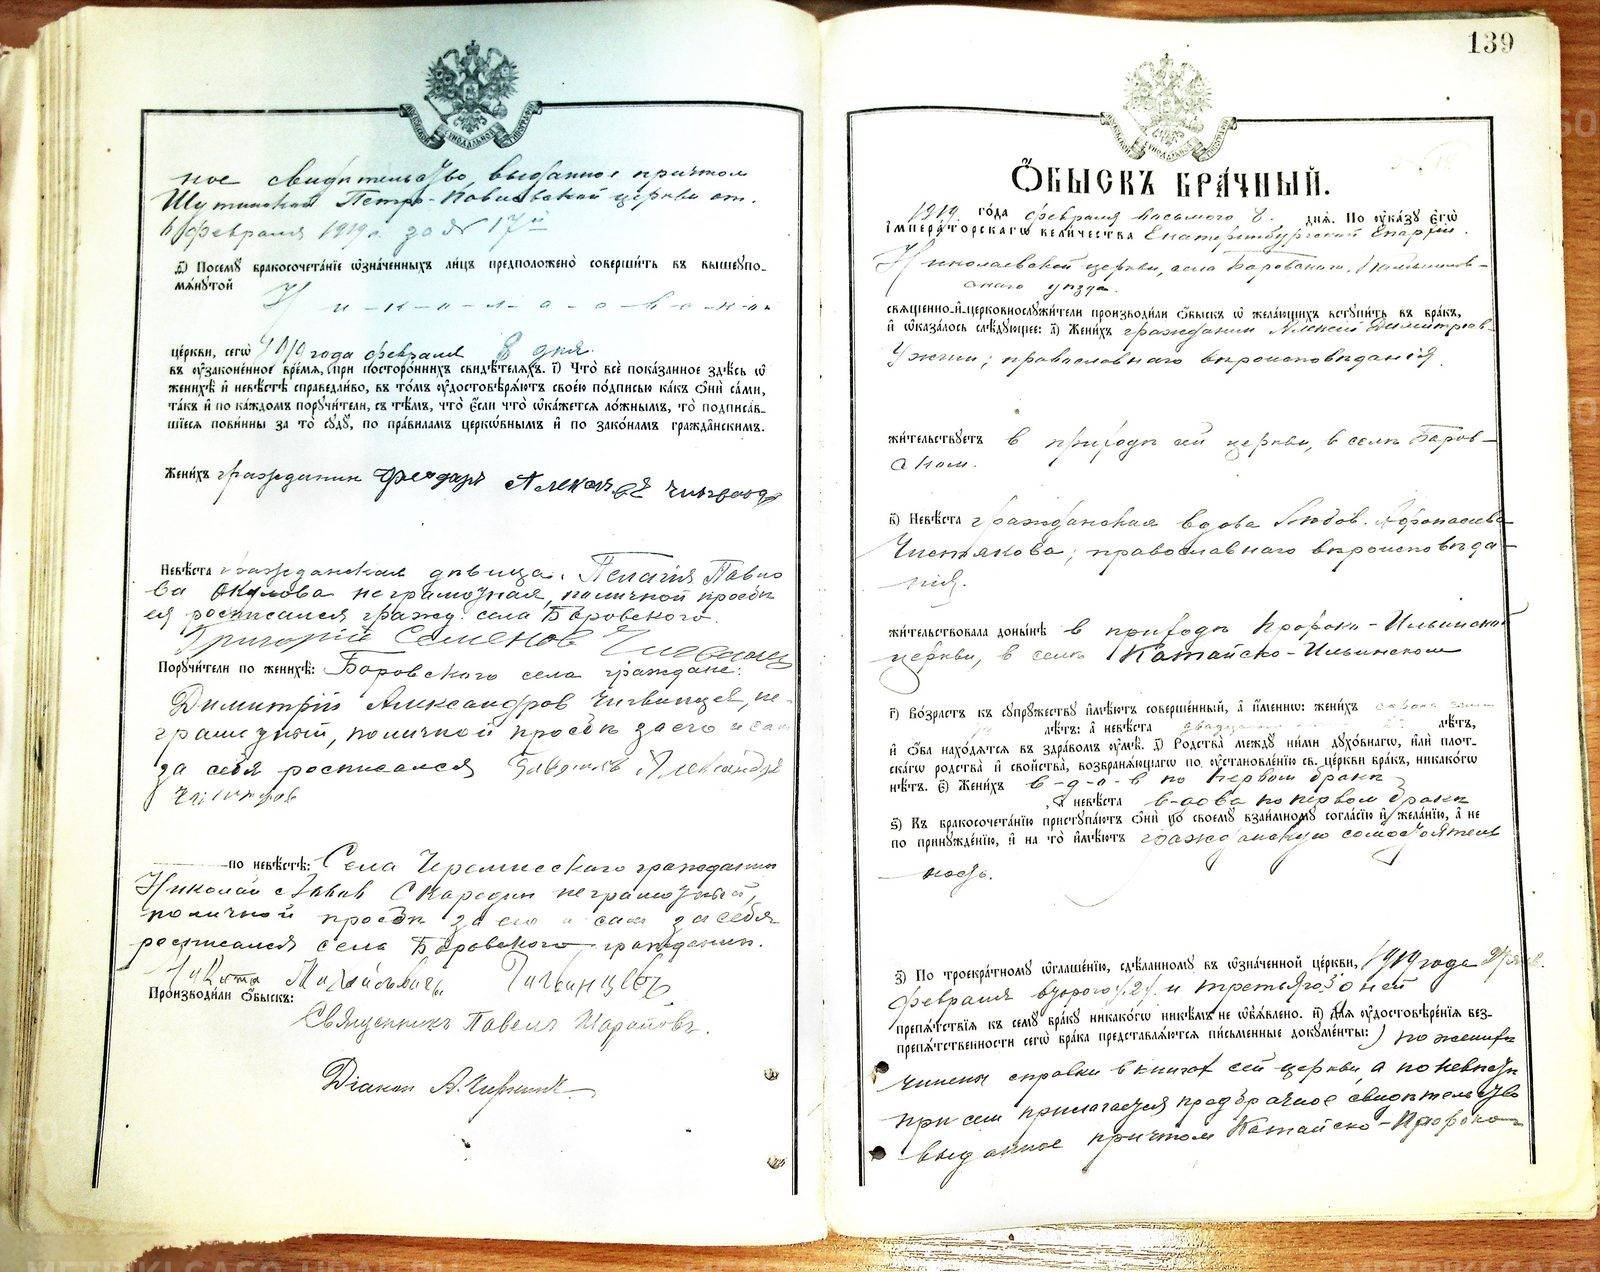 ное свидѣтельство выданное причтомъ
Шутинской Петро-Павловской церкви от
6 февраля 1919 г. за № 17й
д) Посему бракосочета́нїе ѡ҆зна́ченныхъ лицъ предположено̀ соверши́ть въ вышеупо-
мѧ́нутой
Н-и-к-о-л-а-е-в-с-к-о-й
це́ркви, сегѡ̀ 1919 года февраля 8 дня.
въ ᲂу҆зако́ненное вре́мѧ, при посторо́ннихъ свидѣ́телѧхъ. і) Что̀ всѐ пока́занное здѣ́сь ѡ
женихѣ̀ и҆ невѣ́стѣ справедли́во, въ то́мъ ᲂу҆достовѣрѧ́ютъ свое́ю по́дписью ка́къ ѻ҆нѝ са́ми,
та́къ и҆ по ка́ждомъ поручи́тели, съ тѣ́мъ, что̀ є҆́сли что̀ ѡ҆ка́жетсѧ ло́жнымъ, то̀ подписа́в-
шїесѧ пови́нны за то̀ сᲂудꙋ̀, по пра́виламъ церко́внымъ и҆ по зако́намъ гражда́нскимъ.
Жени́хъ гражданин Феодаръ Алексѣевъ
Невѣ́ста гражданская дѣвица, Пелагія Павло
ва Окулова неграмотная, по личной просьбѣ
ея росписался гражд. села Боровского.
Григорій Семенов
Поручи́тели по женихѣ̀: Боровского села граждане:
Димитрій Александров Чигвинцев, не-
грамотный, по личной просьбѣ за его и сам
за себя росписался
по невѣ́стѣ: Села Черемисского гражданин
Николай Львов Скаредин неграмотный,
по личной просьбѣ за его и сам за себя
росписался села Боровского гражданин.
Никита Чигвинцевъ
Производи́ли Ѻ҆́быскъ:
Священникъ Павелъ
Діакон А.
139
Ѻ҆́быскъ бра́чный.
1919. го́да февраля восьмого 8. днѧ̀. По ᲂу҆ка́зꙋ Є҆гѡ̀
І҆мпера́торскагѡ Вели́чества Екатеринбургской Епархіи.
Николаевской церкви, села Боровского, Камышлов-
скаго уѣзда.
свѧще́нно-и҆-церковнослужи́тели производи́ли ѻ҆́быскъ ѡ҆ жела́ющихъ вступи́ть въ бра́къ,
и҆ ѡ҆каза́лось слѣ́дующее: а҃) Жени́хъ гражданин Алексѣй Димитріев-
Ужгин; православнаго вѣроисповѣданія.
жи́тельствуетъ в приходѣ сей церкви, в селѣ Боров-
ском.
в҃) Невѣ́ста гражданская вдова Любов. Афонасьева
Чистякова; православнаго вѣроисповѣда-
нія.
жи́тельствовала доны́нѣ в приходѣ Пророко-Ильинской
церкви, в селѣ Катайско-Ильинском
г҃) Во́зрастъ къ супру́жеству и҆мѣ́ютъ соверше́нный, а҆ и҆́менно: жени́хъ сорока
лѣ́тъ: а҆ невѣ́ста двадцати лѣ́тъ,
и҆ ѻ҆́ба нахо́дѧтсѧ въ здра́вомъ ᲂу҆мѣ̀. д҃) Родства̀ ме́жду ни́ми духо́внагѡ, и҆лѝ пло́т-
скагѡ родства̀ и҆ сво́йства, возбранѧ́ющагѡ по ᲂу҆становле́нїю св. це́ркви бра́къ, никако́гѡ
нѣ́тъ. є҃) Жени́хъ в-д-о-в по первом бракѣ
а҆ невѣ́ста вдова по первом бракѣ
ѕ҃) Къ бракосочета́нїю приступа́ютъ ѻ҆нѝ по своемꙋ̀ взаи́мному согла́сїю и҆ жела́нїю, а҆ не
по принужде́нїю, и҆ на то̀ и҆мѣ́ютъ гражданскую самостоятель
ность.
з҃) По троекра́тному ѡ҆глаше́нїю, сдѣ́ланному въ ѡ҆зна́ченной це́ркви, 1919 года
февраля второго 2. и третьяго 3 дней
препѧ́тствїѧ къ сему̀ бра́ку никако́гѡ никѣ́мъ не ѡ҆б̾ѧ́влено. и҃) Длѧ̀ ᲂу҆достовѣре́нїѧ без-
препѧ́тственности сегѡ̀ бра́ка представлѧ́ютсѧ пи́сьменные докуме́нты: ) по женихѣ
чинены справки в книгах сей церкви, а по невѣстѣ
при сем прилагается предбрачное свидѣтельство
выданное причтом Катайско-Пророко-